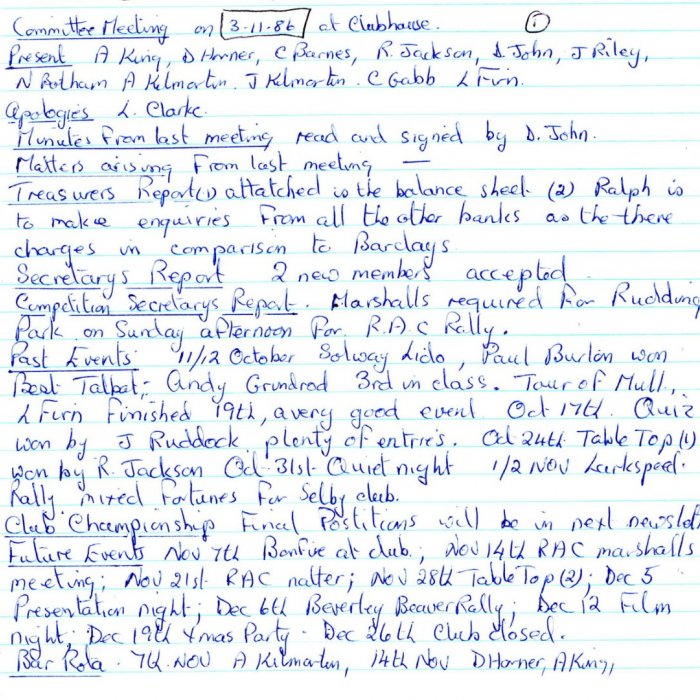 Committee Meeting on 3-11-86 at Clubhouse. 1
Present A King, D Horner, C Barnes, R. Jackson, D. John, J Riley,
N Botham A Kilmartin. J Kilmartin. C Gabb L Firn.
Apologies L. Clarke.
Minutes from last meeting read and signed by D. John.
Matters arising from last meeting —
Treasurers Report (1) attatched is the balance sheet (2) Ralph is
to make enquiries from all the other banks as the there
charges in comparison to Barclays
Secretarys Report 2 new members accepted.
Competition Secretarys Report. Marshalls required for Rudding
Park on Sunday afternoon for R.A.C Rally.
Past Events 11/12 October Solway Lido, Paul Burton won
Best Andy Grundrod 3rd in class. Tour of Mull,
L Firn finished 19th, a very good event Oct 17th. Quiz
won by J Ruddock plenty of entries. Oct 24th Table Top (1)
won by R. Jackson Oct 31st Quiet night 1/2 NOV Larkspeed
Rally mixed fortunes for Selby club.
Club Championship Final Postitions will be in next newslet
Future Events Nov 7th Bonfire at club; Nov 14th RAC marshalls
meeting; Nov 21st RAC natter; Nov 28th Table Top (2); Dec 5
Presentation night; Dec 6th Beverley Beaver Rally; Dec 12 Film
night; Dec 19th Xmas Party. Dec 26th Club closed.
Bar Rota. 7th. NOV A Kilmartin, 14th Nov D Horner, A King,